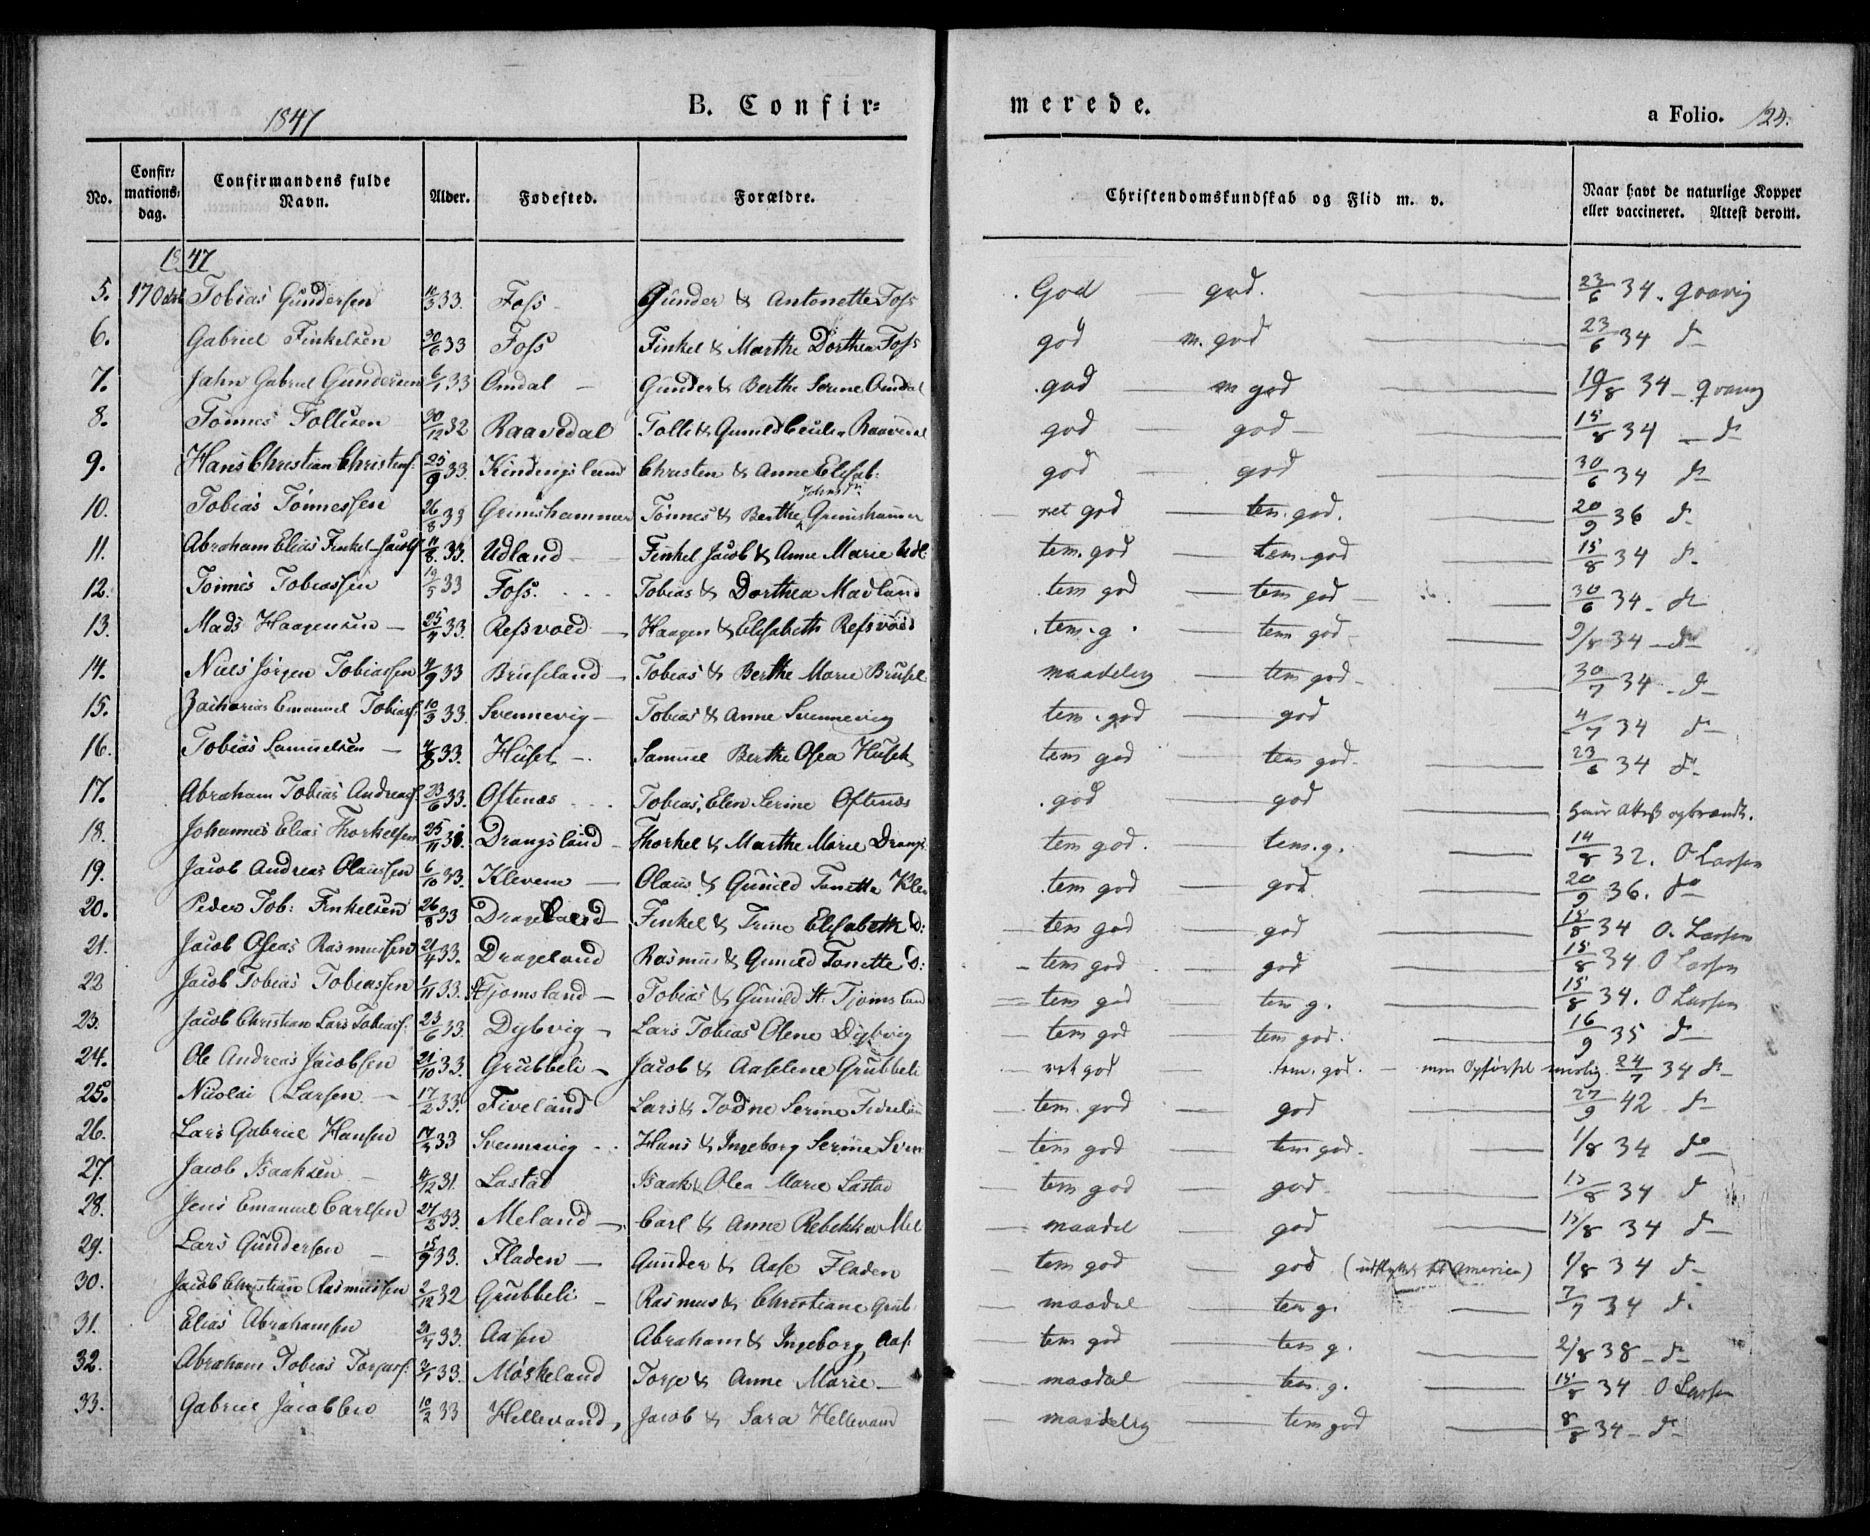 1847
B. Confir=
merede.
a Folio. 123.
No. Confir=mations=dag. Confirmandens fulde Navn. Alder. Fødested. Forældre. Christendomskundskab og Flid m. v. Naar havt de naturlige Kopper eller vaccineret. Attest derom.
1847
5. 17 Octbr Tobias Gundersen 33. Foss Gunder & Antonette Foss God — god. — 23/6 34.
6. Gabriel Finkelsen 30/6 33 Foss Finkel & Marthe Dorthea Foss god m. god — 23/6 34 do
7. Jahn Gabriel Gundersen 6/1 33 Omdal — Gunder & Berthe Serine Omdal god — m god — 10/8 34 –
8. Tønnes Tollisen 30/12 32 Raavedal Tolli & Gunild Raavedal god — god — 15/8 34 — do
9. Hans Christian Christens: 25/9 33. Kindingsland Christen & Anne Elisab: god — god — 30/6 34 do
10. Tobias Tønnessen 26/8 33 Grimshammer Tønnes & Berthe Johnsdtr Grimshammer — ret god — tem. god. — 20/9 36 do
11. Abraham Elias Finkel Jacobs 11/8 33. Udland — Finkel Jacob & Anne Marie Udl: tem. god — tem. god — 15/8 34 do
12. Tønnes Tobiassen 33 Foss. Tobias & Dorthea Mavland tem god — tem god — 30/6 34. do
13. Mads Haagensen — 33. Refsvoed — Haagen & Elisabeth Refsvoed tem. g. — tem god — 9/8 34 — do
14. Niels Jörgen Tobiassen 4/9 33 Bruseland — Tobias & Berthe Marie Brusel — maadelig — tem god — 30/7 34 – do
15. Zacharias Emanuel Tobiass: 10/3 33. Svennevig — Tobias & Anne Svennevig tem. god — god — 4/7 34 do
16. Tobias Samuelsen — 4/8 33. Huset — Samuel Berthe Osea Huset tem god — tem god. — 23/6 34 do
17. Abraham Tobias Andreas: 23/6 33. Oftenæs Tobias, Elen Serine Oftenæs god — god —
18. Johannes Elias Thorkelsen 25/11 Drangsland — Thorkel & Marthe Marie Drangs: tem god. — tem. g. — 14/8 32. O Larsen
19. Jacob Andreas Olaussen 6/10 33. Klevene — Olaus & Gunild Tonette Klev tem god — god — 20/9 36. do
20. Peder Tob: Finkelsen 26/8 33 Drageland — Finkel & Trine Elisabeth D: — tem god — god — 15/8 34 O. Larsen
21. Jacob Oseas Rasmussen 21/4 33. Drageland Rasmus & Gunild Tonette D: — tem god — god — 15/8 34. O Larsen
22 Jacob Tobias Tobiassen 1/11 33. Tjomsland — Tobias & Gunild Tjomsland — tem god — tem g. — 15/8 34. O Larsen
23. Jacob Christian Lars Tobiass: 23/6 33. Dybvig — Lars Tobias Olene Dybvig — tem god — tem god. — 16/9 35 do
24. Ole Andreas Jacobsen 21/10 33. Grubbeli — Jacob & Aaselene Grubbeli — ret god tem. god. — men Opførsel urolig. 24/7 34 do
25. Nicolai Larsen — 17/2 33. Fiveland Lars & Todne Serine Fivelan — tem. god — god — 27/9 42 do
26. Lars Gabriel Hansen 33 Svennevig Hans & Ingeborg Serine Sven — tem god — tem god. — 1/8 34 do
27. Jacob Isaksen — 4/12 31. Lastad Isaak & Olea Marie Lastad — tem god — god. — 15/8 34 do
28. Jens Emanuel Carlsen 33. Meland — Carl & Anne Rebekka Mel — maadel — god — 15/8 34 do
29. Lars Gundersen — 33. Fladen — Gunder & Aase Fladen — tem god — god (udflyttet til America) 1/8 34 do
30. Jacob Christian Rasmussen 2/12 32 Grubbeli — Rasmus & Christiane Grub: — maadel — tem g. — 7/7 34 do
31. Elias Abrahamsen 33. Aasen Abraham & Ingeborg, Aas: — tem god — tem g. — 2/8 38 — do
32. Abraham Tobias Torjess: 33. Møskeland Torje & Anne Marie — maadel — tem. g. — 15/8 34 O Larsen
33. Gabriel Jacobsen 10/2 33 Hellevand, Jacob & Sara Hellevand — maadelig — tem god — 8/8 34 – do